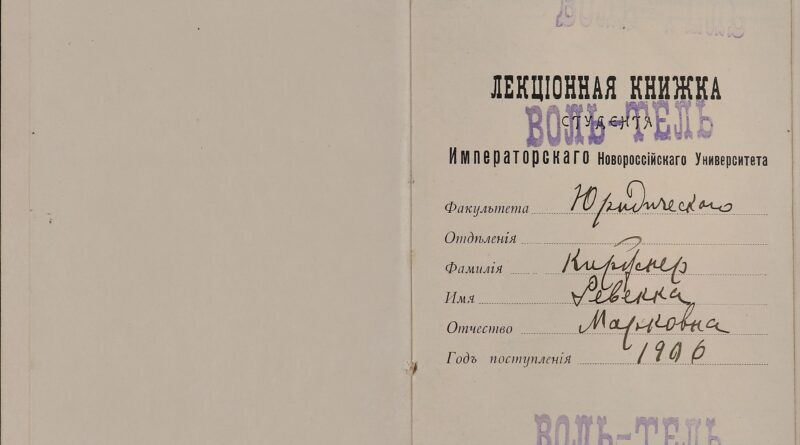 ВОЛЬ-ТЕЛЬ
ЛЕКЦІОННАЯ КНИЖКА
СТУДЕНТА
ВОЛЬ-ТЕЛЬ
Императорскаго Новороссійскаго Университета
Факультета Юридическаго
Отдѣленія
Фамилія
Имя Ревекка
Отчество Марковна
Годъ поступленія 1906
ВОЛЬ-ТЕЛЬ